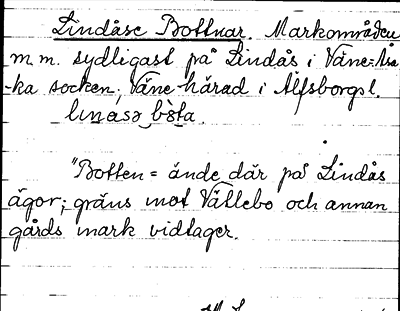 Lindåse Bottnar. Markområden
m.m. sydligast på Lindås i Väne-Åsa
-ka socken, Väne härad i Älfsborgs l.
linasə bòta.
"Botten = ände, där på Lindås
ägor; gräns mot Vättebo och annan
gårds mark vidtager.